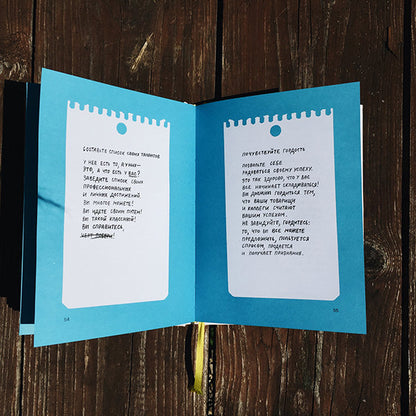 СОСТАВЬТЕ СПИСОК СВОИХ ТАЛАНТОВ
У НЕЁ ЕСТЬ ТО, А У НИХ —
ЭТО, А ЧТО ЕСТЬ У ВАС?
ЗАВЕДИТЕ СПИСОК СВОИХ
ПРОФЕССИОНАЛЬНЫХ
И ЛИЧНЫХ ДОСТИЖЕНИЙ
ВЫ МНОГОЕ МОЖЕТЕ!
ВЫ ИДЕТЕ СВОИМ ПУТЕМ!
ВЫ ТАКОЙ КЛАССНЫЙ!
ВЫ СПРАВИТЕСЬ,
54
ПОЧУВСТВУЙТЕ ГОРДОСТЬ
ПОЗВОЛЬТЕ СЕБЕ
РАДОВАТЬСЯ СВОЕМУ УСПЕХУ.
ЭТО ТАК ЗДОРОВО, ЧТО У ВАС
ВСЕ НАЧИНАЕТ СКЛАДЫВАТЬСЯ!
ВЫ ДОЛЖНЫ ГОРДИТЬСЯ ТЕМ,
ЧТО ВАШИ ТОВАРИЩИ
И КОЛЛЕГИ СЧИТАЮТ
ВАШИМ УСПЕХОМ.
НЕ ЗАБУДЬТЕ, ГОРДИТЕСЬ:
ТО, ЧТО ВЫ МОЖЕТЕ
ПРЕДЛОЖИТЬ, ПОЛЬЗУЕТСЯ
СПРОСОМ, ПРОДАЕТСЯ
И ПОЛУЧАЕТ ПРИЗНАНИЕ.
55